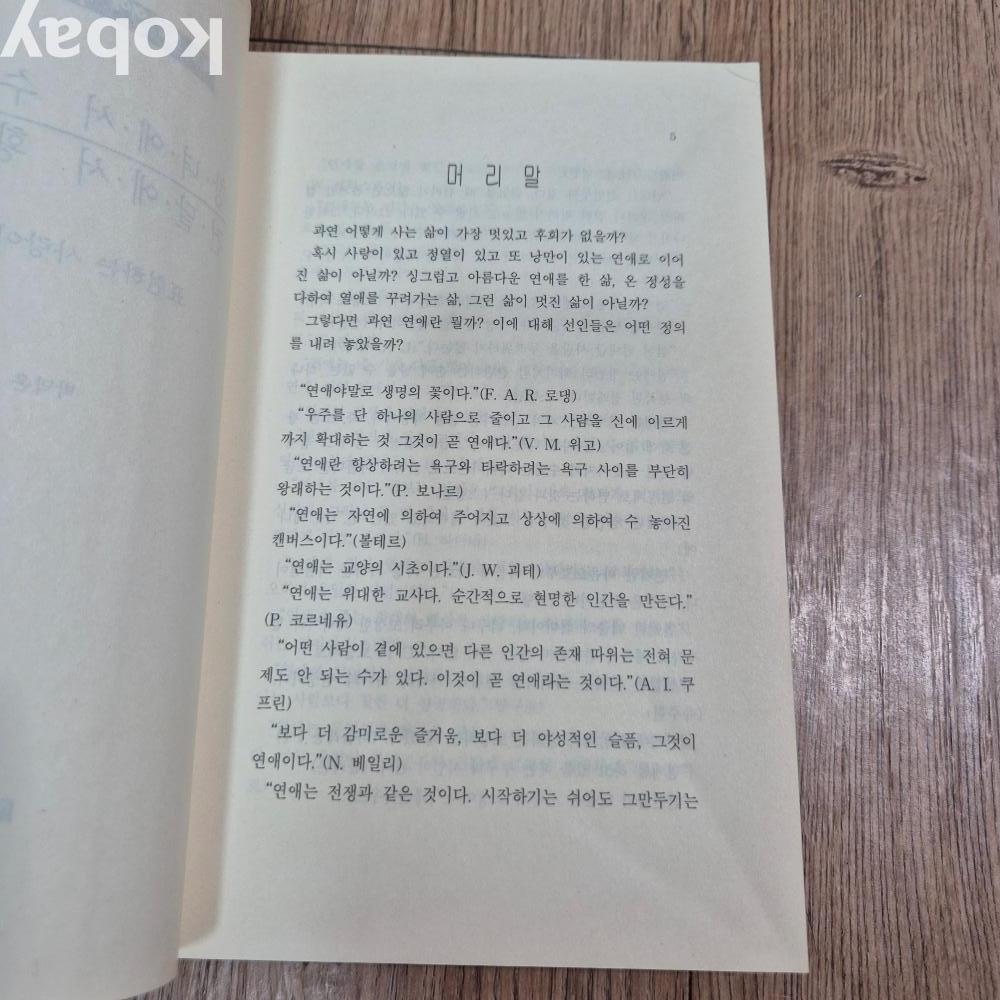 kobay
5
머리말
과연 어떻게 사는 삶이 가장 멋있고 후회가 없을까?
혹시 사랑이 있고 정열이 있고 또 낭만이 있는 연애로 이어
진 삶이 아닐까? 싱그럽고 아름다운 연애를 한 삶, 온 정성을
다하여 열애를 꾸려가는 삶, 그런 삶이 멋진 삶이 아닐까?
그렇다면 과연 연애란 뭘까? 이에 대해 선인들은 어떤 정의
를 내려 놓았을까?
“연애야말로 생명의 꽃이다.”(F. A. R. 로댕)
“우주를 단 하나의 사람으로 줄이고 그 사람을 신에 이르게
까지 확대하는 것 그것이 곧 연애다.”(V. M. 위고)
“연애란 향상하려는 욕구와 타락하려는 욕구 사이를 부단히
왕래하는 것이다.”(P. 보나르)
“연애는 자연에 의하여 주어지고 상상에 의하여 수 놓아진
캔버스이다.”(볼테르)
“연애는 교양의 시초이다.”(J. W. 괴테)
“연애는 위대한 교사다. 순간적으로 현명한 인간을 만든다.”
(P. 코르네유)
“어떤 사람이 곁에 있으면 다른 인간의 존재 따위는 전혀 문
제도 안 되는 수가 있다. 이것이 곧 연애라는 것이다.”(A. I. 쿠
프린)
“보다 더 감미로운 즐거움, 보다 더 야성적인 슬픔, 그것이
연애이다.”(N. 베일리)
“연애는 전쟁과 같은 것이다. 시작하기는 쉬어도 그만두기는